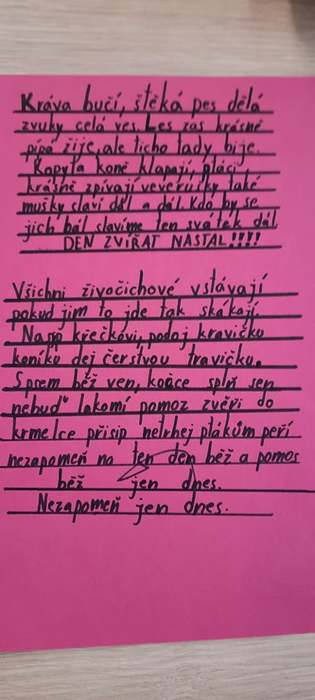 Kráva bučí, štěká pes dělá
zvuky celá ves. Les zas krásně
pípá žije, ale ticho tady bije.
Kopyta koně klapají, ptáci
krásně zpívají veverušky také
mušky slaví dál a dál. Kdo by se
jich bál slavíme ten svátek dál
DEN ZVÍŘAT NASTAL!!!!
Všichni živočichové vstávají
pokud jim to jde tak skákají.
Napp křečkovi, podoj kravičku
koníku dej čerstvou travičku.
Sprem běž ven, kočce splň sen
nebuď lakomí pomoz zvěři do
krmelce přisip netrhej ptákům peří
nezapomeň na ten den běž a pomos
běž jen dnes.
Nezapomeň jen dnes.